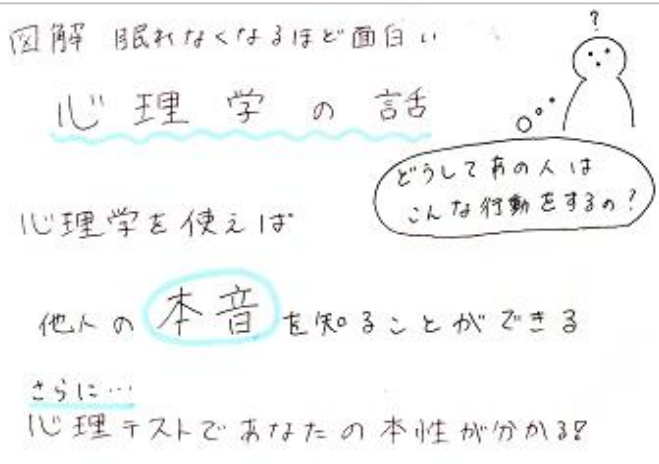 図解 眠れなくなるほど面白い
心理学の話
?
どうしてあの人は
こんな行動をするの?
心理学を使えば
他人の本音を知ることができる
さらに…
心理テストであなたの本性が分かる!?